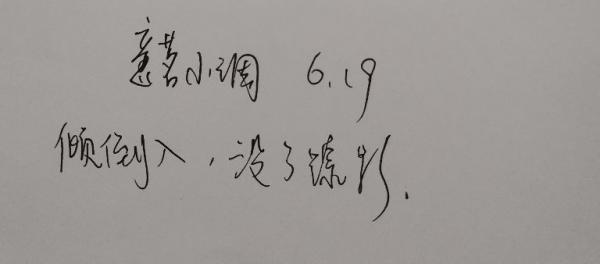 意茗小调 6.19
倾倒入，没了踪影.